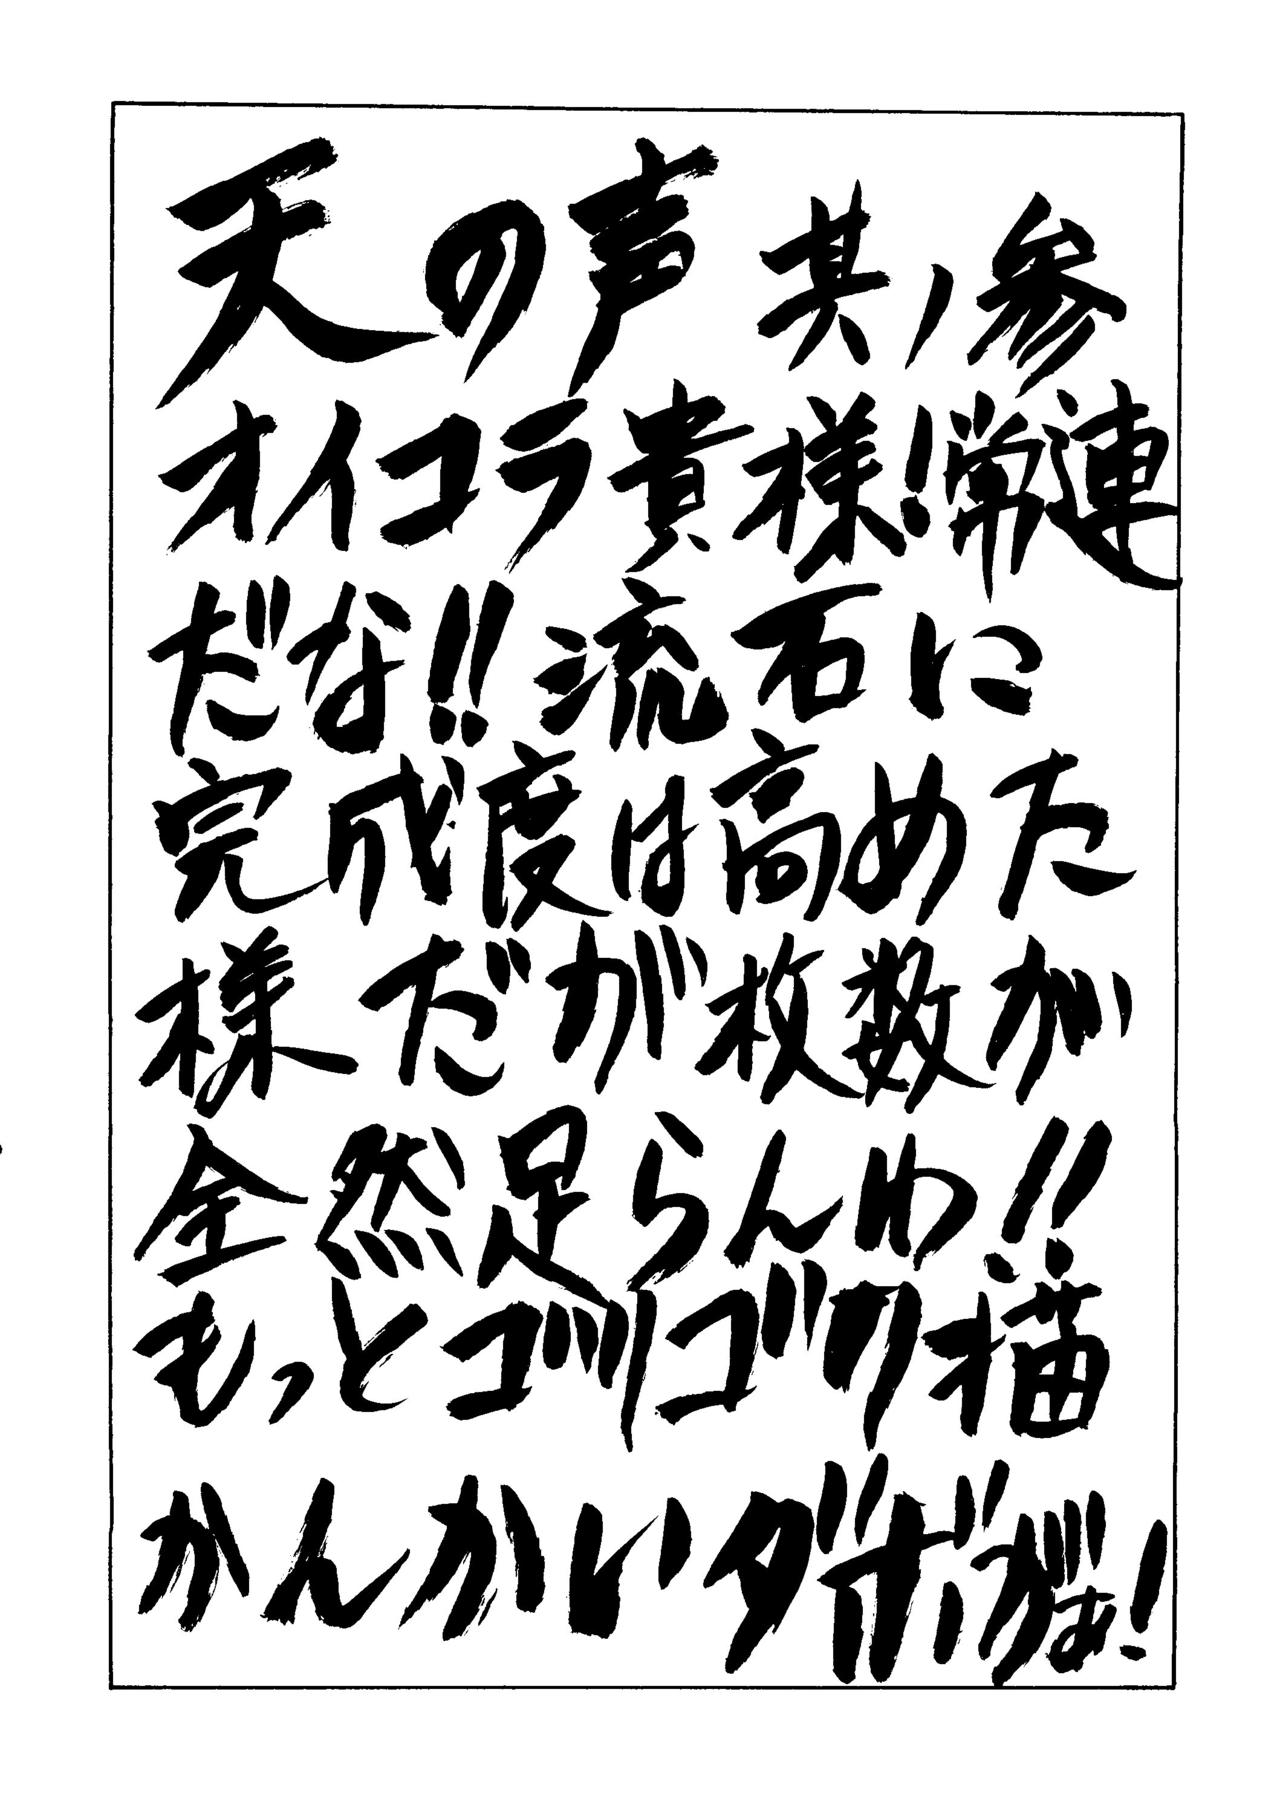 天の声 其ノ参
オイコラ貴様!常連
だな!!流石に
完成度は高めた
様だが枚数が
全然足らんわ!!
もっとゴリゴリ描
かんかいダボがぁ!